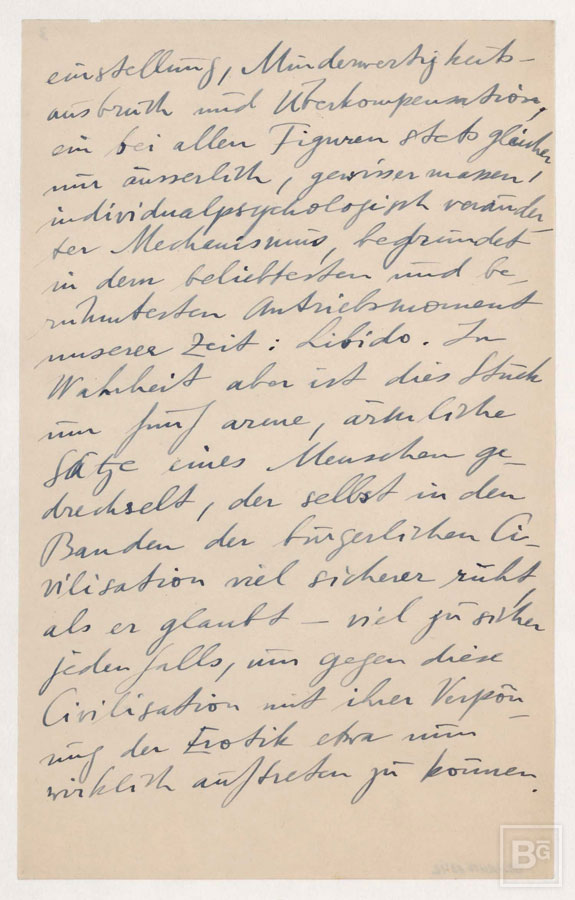 einstellung, Minderwertigkeits-
ausbruch und Überkompensation,
ein bei allen Figuren stets gleicher
nur äusserlich, gewissermassen,
individualpsychologisch veränder-
ter Mechanismus, begründet
in dem beliebtesten und be-
rühmtesten Antriebsmoment
unserer Zeit: Libido. In
Wahrheit aber ist dies Stück
um fünf arme, ärmliche
Sätze eines Menschen ge-
drechselt, der selbst in den
Banden der bürgerlichen Ci-
vilisation viel sicherer ruht,
als er glaubt – viel zu sicher
jedenfalls, um gegen diese
Civilisation mit ihrer Verpön-
ung der Erotik etwa nun
wirklich auftreten zu können.
BG